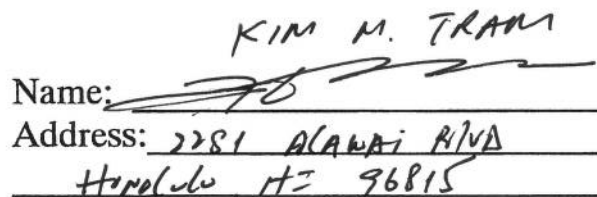 KIM M. TRAM
Name:
Address: 2281 ALAWAi BlVD
HONOLULU HI 96815